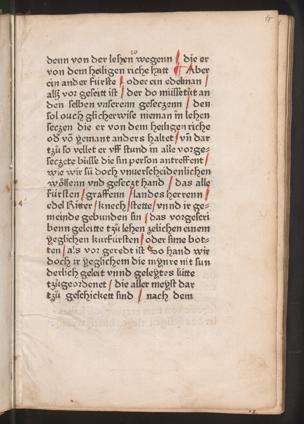 denn von der lehen wegenn / die er
von dem heiligen riche hatt Aber
ein ander fürste / oder ein edelman /
alß vor geseitt ist / der do missetůt an
den selben vnserenn geseczenn / den
sol ouch glicherwise nieman in lehen
seczen die er von dem heiligen riche
od von yemant anders haltet / vñ dar
tzů so vellet er vff stund in alle vorge-
seczete bůsse die sin person antreffent /
wie wir sü doch vnuerscheidenlichen
wöllenn vnd geseczt hand / das alle
fürsten / graffenn / landes herrenn /
edel Ritter / knech / stette / vnnd ir ge-
meinde gebunden sin / das vorgescri
benn geleitte tzů lehen zelichen einem
yeglichen kurfürsten / oder sime bot-
ten / als vor geredt ist So hand wir
doch ir yeglichem die mynre nit sun
derlich geleit vnnd geleytes lütte
tzůgeordenet / die aller meyst dar
tzů geschickett sind / nach dem